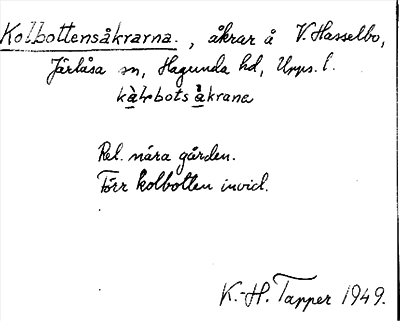 Kolbottensåkrarna., åkrar å V. Hasselbo,
Järlåsa sn, Hagunda hd, Upps. l.
kàlbots åkrana
Rel. nära gården.
Förr kolbotten invid.
K.-H. Tapper 1949.